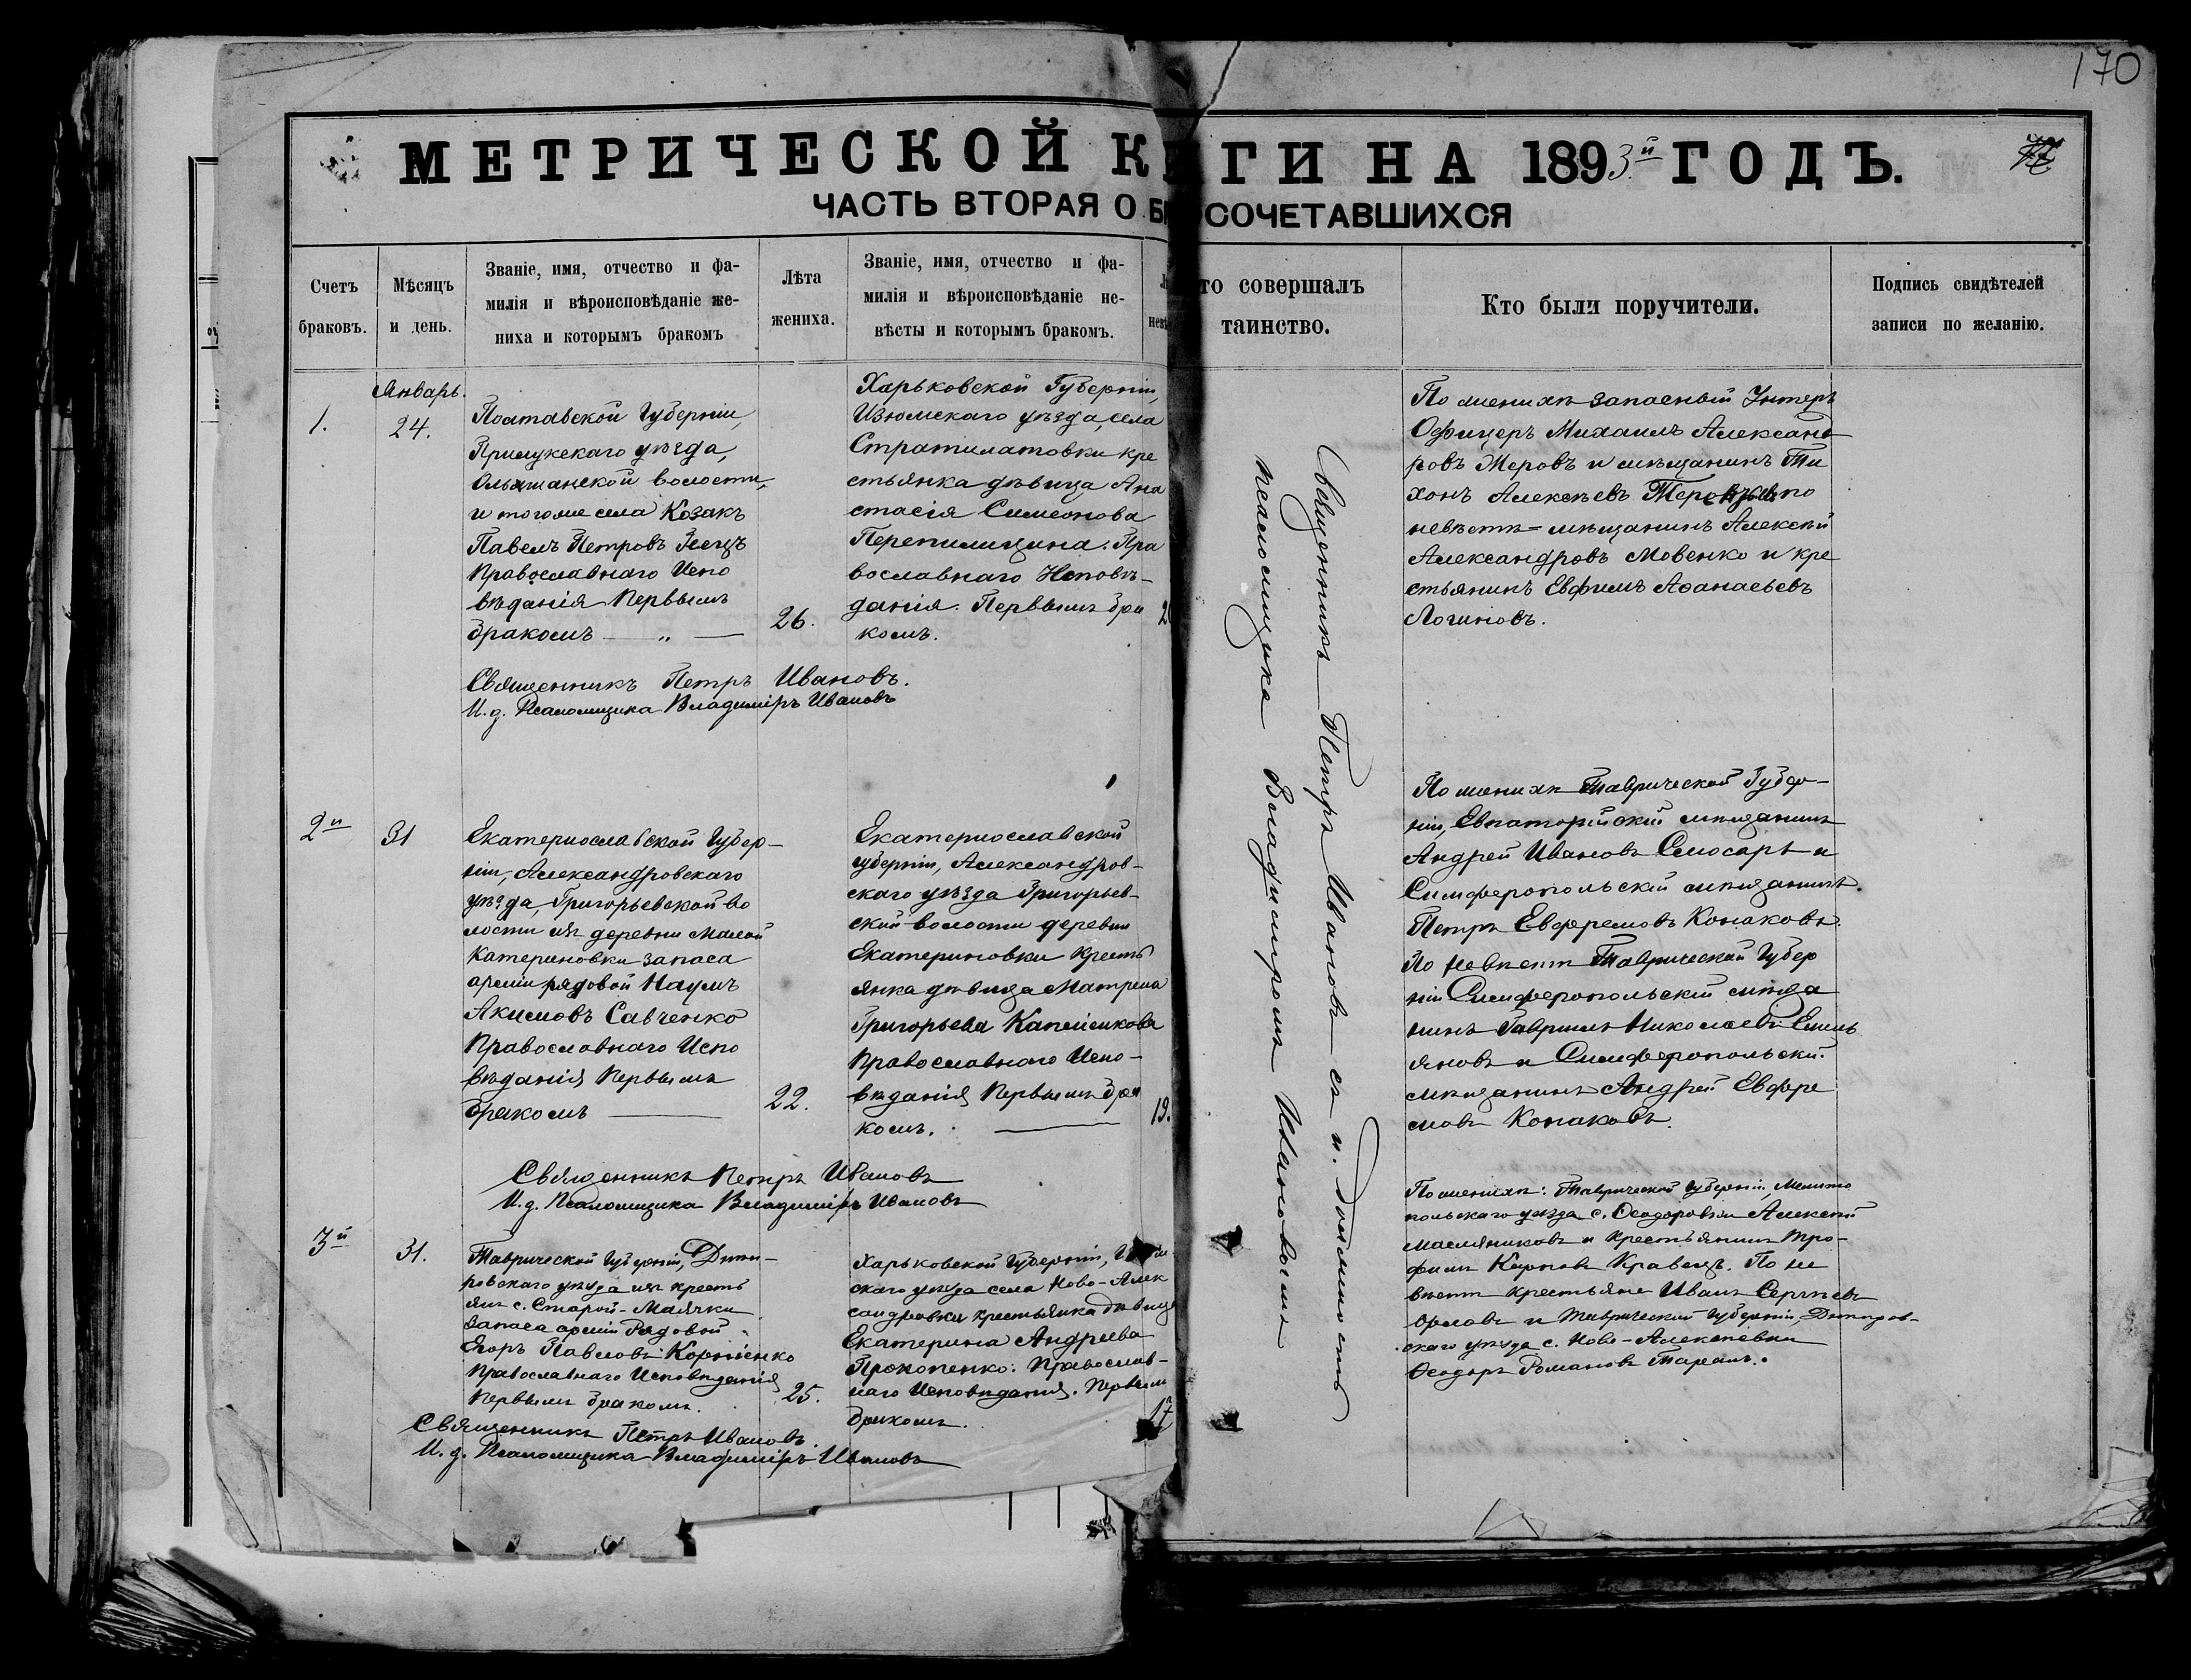 170
МЕТРИЧЕСКОЙ К ГИ НА 1893й ГОДЪ.
ЧАСТЬ ВТОРАЯ О Б СОЧЕТАВШИХСЯ
Счетъ
браковъ.
Мѣсяцъ
и день.
Званіе, имя, отчество и фа-
милія и вѣроисповѣданіе же-
ниха и которымъ бракомъ
Лѣта
жениха.
Званіе, имя, отчество и фа-
милія и вѣроисповѣданіе не-
вѣсты и которымъ бракомъ.
то совершалъ
таинство.
Кто были поручители.
Подпись свидѣтелей
записи по желанію.
1.
Январь.
24.
Полтавской Губерніи,
Прилукскаго уѣзда,
Ольшанской волости,
и тогоже села Козакъ
Павелъ Петровъ
Православнаго Испо
вѣданія Первымъ
бракомъ — „ —
26.
Харьковской Губерніи,
Изюмскаго уѣзда, села
Стратилатовки кре
стьянка дѣвица Ана
стасія Симеонова
Перепилицина. Пра
вославнаго Исповѣ-
данія. Первымъ бра
комъ.
2
Священникъ Петръ Ивановъ.
И. д. Псаломщика Владиміръ Ивановъ
По женихѣ запасный Унтеръ
Офицеръ Михаилъ Александ
ровъ Меровъ и мѣщанинъ Ти
хонъ Алексѣевъ по
невѣстѣ = мѣщанинъ Алексѣй
Александровъ Мовенко и кре
стьянинъ Евфимъ Аѳанасьевъ
Логиновъ.
Священникъ Петръ Ивановъ съ и. должность
псаломщика Владиміромъ Ивановымъ
2й
31
Екатеринославской Губер-
ніи, Александровскаго
уѣзда, Григорьевской во
лости изъ деревни Малой
Катериновки запаса
арміи рядовой Наумъ
Акимовъ Савченко
Православнаго Испо
вѣданія Первымъ
бракомъ —
22.
Екатеринославской
губерніи, Александров-
скаго уѣзда Григорьев-
ской волости деревни
Екатериновки Кресть
янка дѣвица Матрена
Григорьева Капейликова
Православнаго Испо-
вѣданія Первымъ бра
комъ. —
19.
Священникъ Петръ Ивановъ
И. д. Псаломщика Владиміръ Ивановъ
По женихѣ Таврической Губер-
ніи, Евпаторійскій мѣщанинъ
Андрей Ивановъ Слюсарь и
Симферопольскій мѣщанинъ.
Петръ Евфремовъ Конаковъ.
По невѣстѣ Таврической Губер
ніи Симферопольскій мѣща
нинъ Гавріилъ Николаевъ Емель
яновъ и Симферопольскій
мѣщанинъ Андрей Евфре
мовъ Конаковъ.
3й
31.
Таврической Губерніи, Днѣп-
ровскаго уѣзда изъ кресть
янъ с. Старой-Маячки
запаса арміи Рядовой
Егоръ Павловъ Корніенко
Православнаго Исповѣданія
Первымъ бракомъ.
25.
Харьковской Губерніи,
скаго уѣзда села Ново-Алек
сандровки крестьянка дѣвица
Екатерина Андреева
Прокопенко: Православ-
наго Исповѣданія. Первым
бракомъ.
17
Священникъ Петръ Ивановъ.
И. д. Псаломщика Владиміръ Ивановъ
По женихѣ: Таврической Губерніи, Мелито
польскаго уѣзда с. Ѳеодоровки Алексѣй
Масляниковъ и крестьянинъ Тро-
фимъ Карповъ Кравецъ. По не
вѣстѣ крестьяне Иванъ Сергѣевъ
Орловъ и Таврической Губерніи, Днѣпров-
скаго уѣзда с. Ново-Алексѣевки
Ѳеодоръ Романовъ Таранъ.